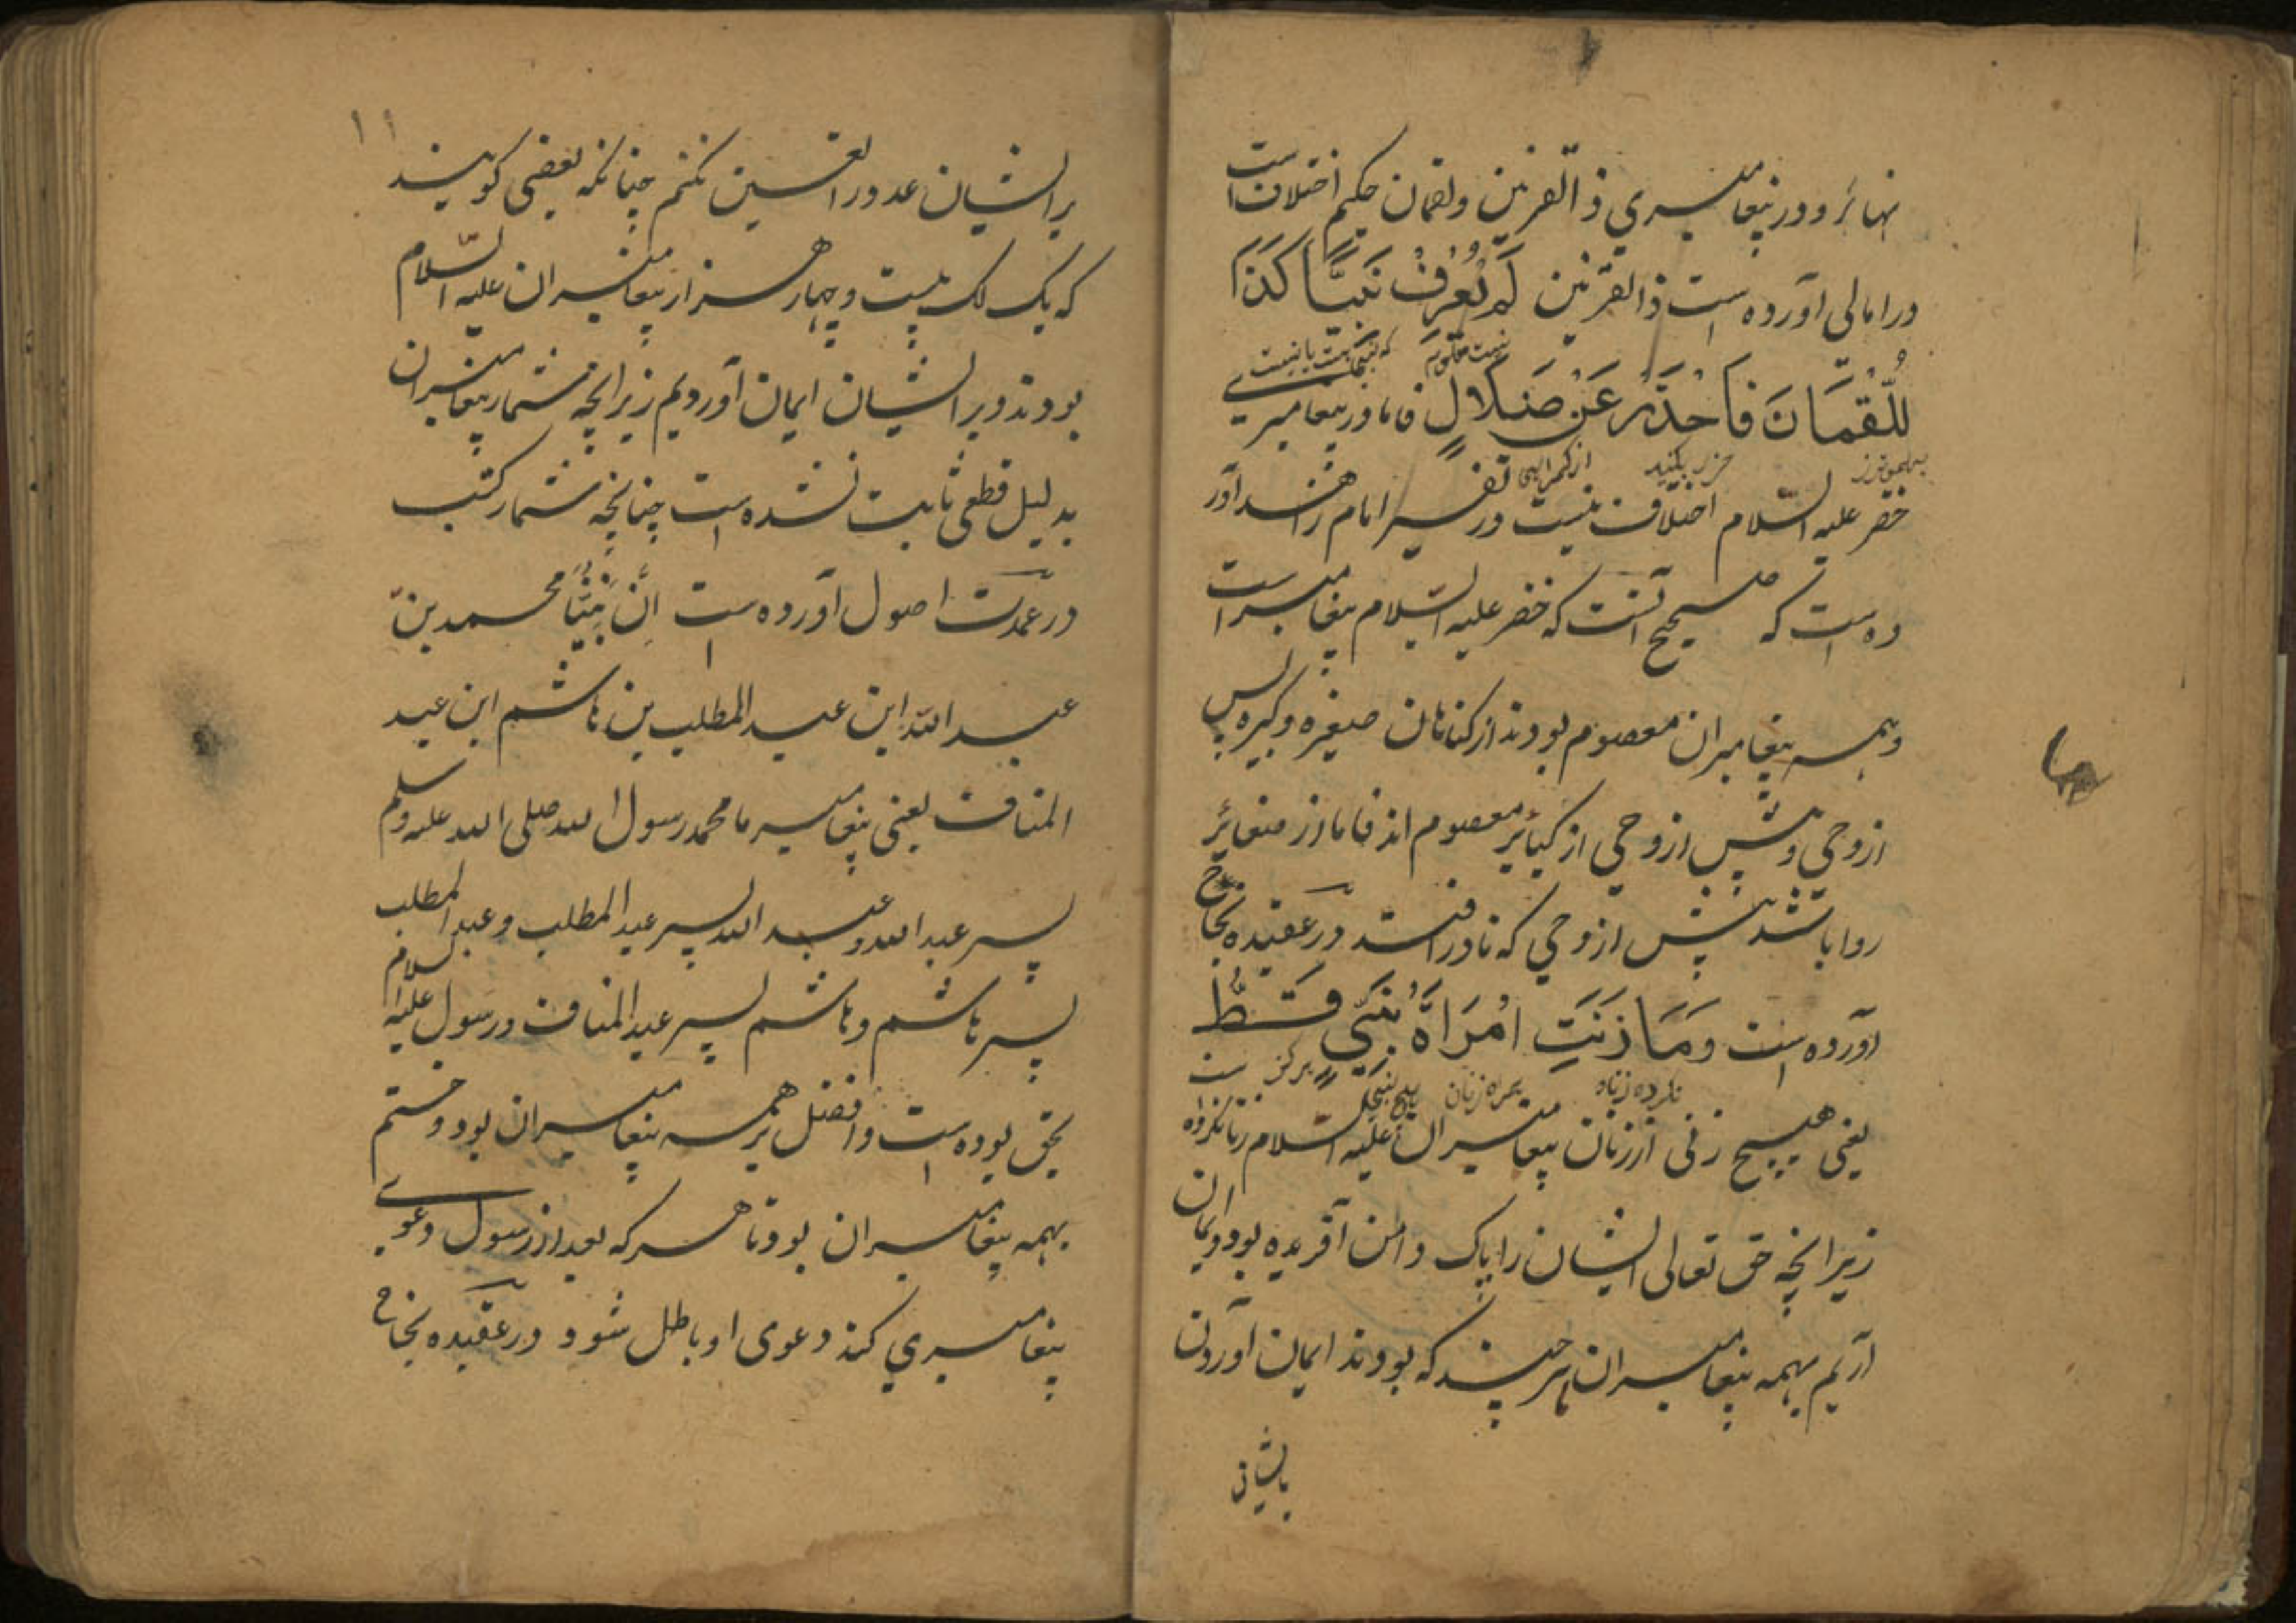 نهائر و در پیغامبری ذالقرنین ولقمان حکیم اختلاف است
در امالی آورده است ذالقرنین لَمْ یُعْرَفْ نَبِیًّا کَذَا
نیست معلوم که نبی است یا نیست
لُقْمَانَ فَاحْذَرْ عَنْ ضَلَالٍ فاما در پیغامبری
حذر بکنید از گمراهی
خضر علیه السّلام اختلاف نیست در تفسیر امام زاهد آور
ده است که صحیح آنست که خضر علیه السّلام پیغامبر است
و همه پیغامبران معصوم بودند از کناهان صغیره و کبیره پس
از وحی و پیش از وحی از کبائر معصوم اند فاما از صغائر
روا باشد پیش از وحی که نادر افتد در عقیده نجاح
آورده است وَمَا زَنَتِ امْرَأَةُ نَبِیٍّ قَطُّ
نکرده زناه همراه زنان هیچ نبی هرگز
یعنی هیچ زنی از زنان پیغامبران علیه السلام زنا نکرده است
زیرانچه حق تعالی ایشان را پاک دامن آفریده بود و ایمان
آریم بهمه پیغامبران هر چند که بودند ایمان آوردن
بایشان
۱۱
بر ایشان عدد را تعیین نکنم چنانکه بعضی کویند
که یک لک بیست و چهار هزار پیغامبران علیه السّلام
بودند و بر ایشان ایمان آوردیم زیرانچه شمار پیغامبران
بدلیل قطعی ثابت نشده است چنانچه شمار کتب
در عمدت اصول آورده است اِنَّ نَبِیَّنَا محمد بن
عبد الله ابن عبد المطلب بن هاشم ابن عبد
المناف یعنی پیغامبر ما محمد رسول الله صلی الله علیه وسلم
پسر عبد الله و عبد الله پسر عبد المطلب و عبد المطلب
پسر هاشم و هاشم پسر عبد المناف و رسول علیه السلام
بحق بوده است و افضل بر همه پیغامبران بود و ختم
بهمه پیغامبران بود تا هر که بعد از رسول دعوی
پیغامبری کند دعوی او باطل شود و در عقیده نجاح